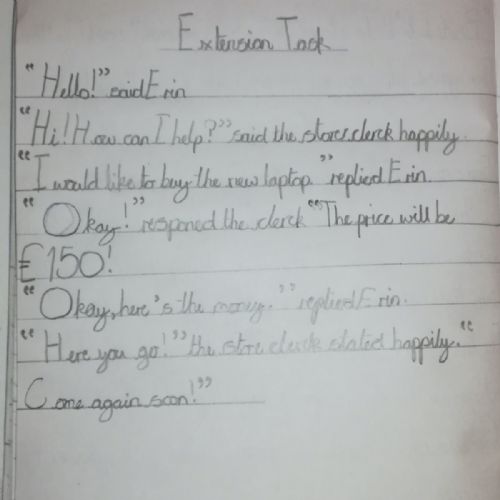 Extension Task
"Hello!" said Erin
"Hi! How can I help?" said the stores clerk happily.
"I would like to buy the new laptop." replied Erin.
"Okay!" responed the clerk "The price will be
£150!
"Okay, here's the money." replied Erin.
"Here you go!" the store clerck stated happily."
Come again soon!"